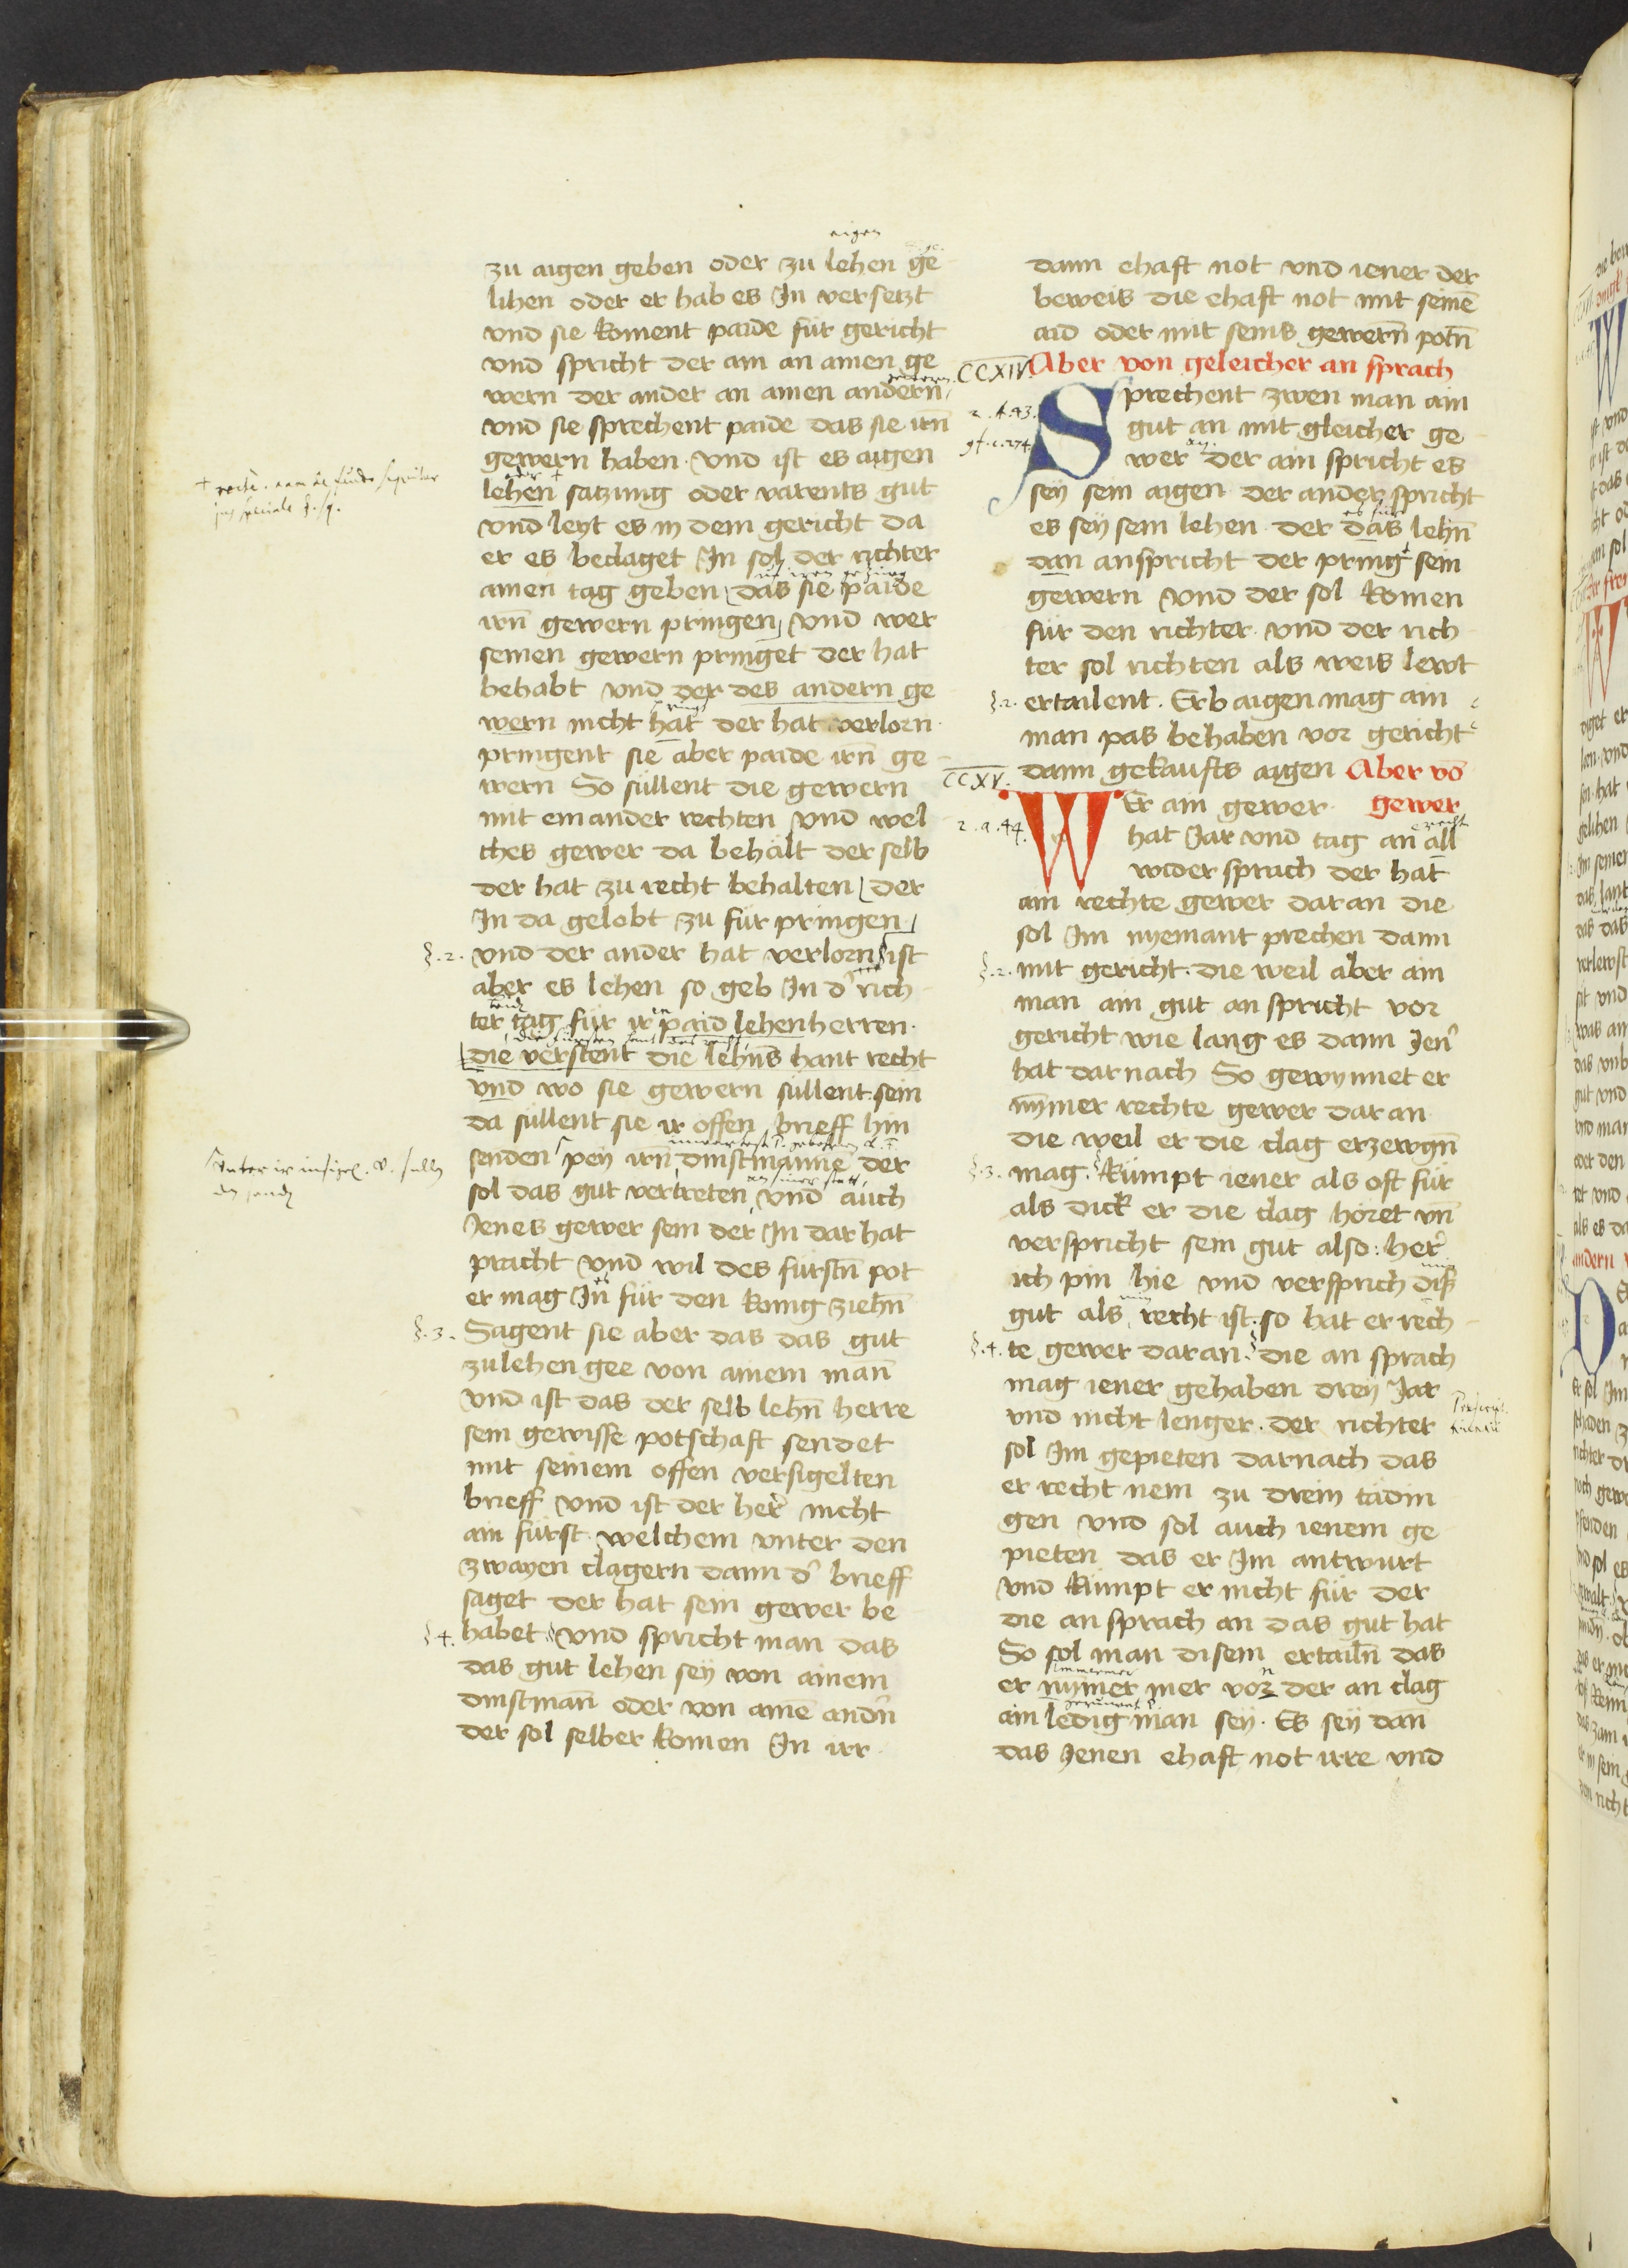 eigen
zu aigen geben oder zu lehen ge
lihen oder er hab es In versetzt
vnd sie koment paide für gericht
vnd spricht der ain an ainen ge
wern der ander an ainen andern
vnd sie sprechent paide das sie irn̄
gewern haben. Vnd ist es aigen
lehen satzung oder varents gut
vnd leyt es in dem gericht da
er es beclaget In sol der richter
ainen tag geben das sie paide
irn̄ gewern pringen vnd wer
seinen gewern pringet der hat
behabt vnd der des andern ge
wern nicht hat der hat verlorn.
pringent sie aber paide irn̄ ge
wern So süllent die gewern
mit einander rechten vnd wel
ches gewer da behalt der selb
der hat zu recht behalten der
In da gelobt zu für pringen
§.2. vnd der ander hat verlorn ist
aber es lehen so geb In d' rich
ter tag für ir paid lehenherren.
die verstent die lehns hant recht
vnd wo sie gewern süllent sein
da süllent sie ir offen brieff hin
senden pey irn̄ dinstmanne der
sol das gut vertreten vnd auch
Jenes gewer sein der In dar hat
pracht vnd wil des fürstn̄ pot
er mag In für den konig ziehn̄
§.3. Sagent sie aber das das gut
zulehen gee von ainem man̄
vnd ist das der selb lehn̄ herre
sein gewisse potschaft sendet
mit seinem offen versigelten
brieff vnd ist der her' nicht
ain fürst. welchem vnter den
zwayen clagern dann d' brieff
saget der hat sein gewer be
§.4. habet vnd spricht man das
das gut lehen sey von ainem
dinstman̄ oder von aine and'n
der sol selber komen In irr
dann ehaft not vnd iener der
beweis die ehaft not mit seinē
aid oder mit seins gewern̄ potn̄
CCXIV. Aber von geleicher an sprach
Sprechent zwen man ain
gut an mit gleicher ge
wer der ain spricht es
sey sein aigen der ander spricht
es sey sein lehen. der das lehn̄
dan anspricht der pring sein
gewern Vnd der sol komen
für den richter. vnd der rich
ter sol richten als weis lewt
§.2. ertailent. Erb aigen mag ain
man pas behaben vor gericht
CCXV. dann gekaufts aigen Aber vō
gewer
2.a.44. WEr ain gewer
hat Jar vnd tag an all
wider sprach der hat
ain rechte gewer daran die
sol Im nyemant prechen dann
§.2. mit gericht. die weil aber ain
man ain gut an spricht vor
gericht wie lang es dann Jen'
hat darnach So gewynnet er
nym̄er rechte gewer dar an
die weil er die clag erzewgn̄
§.3. mag. kümpt iener als oft für
als dick er die clag höret vn̄
verspricht sein gut also: her'
ich pin hie vnd versprich dis
gut als recht ist. so hat er rech
§.4. te gewer daran. die an sprach
mag iener gehaben drey Jar
vnd nicht lenger. der richter
sol Im gepieten darnach das
er recht nem zu drein tädin
gen vnd sol auch ienem ge
pieten das er Im antwurt
vnd kümpt er nicht für der
die an sprach an das gut hat
So sol man disem ertailn̄ das
er nym̄er mer vor der an clag
ain ledig man sey. Es sey dan̄
das Jenen ehaft not irre vnd